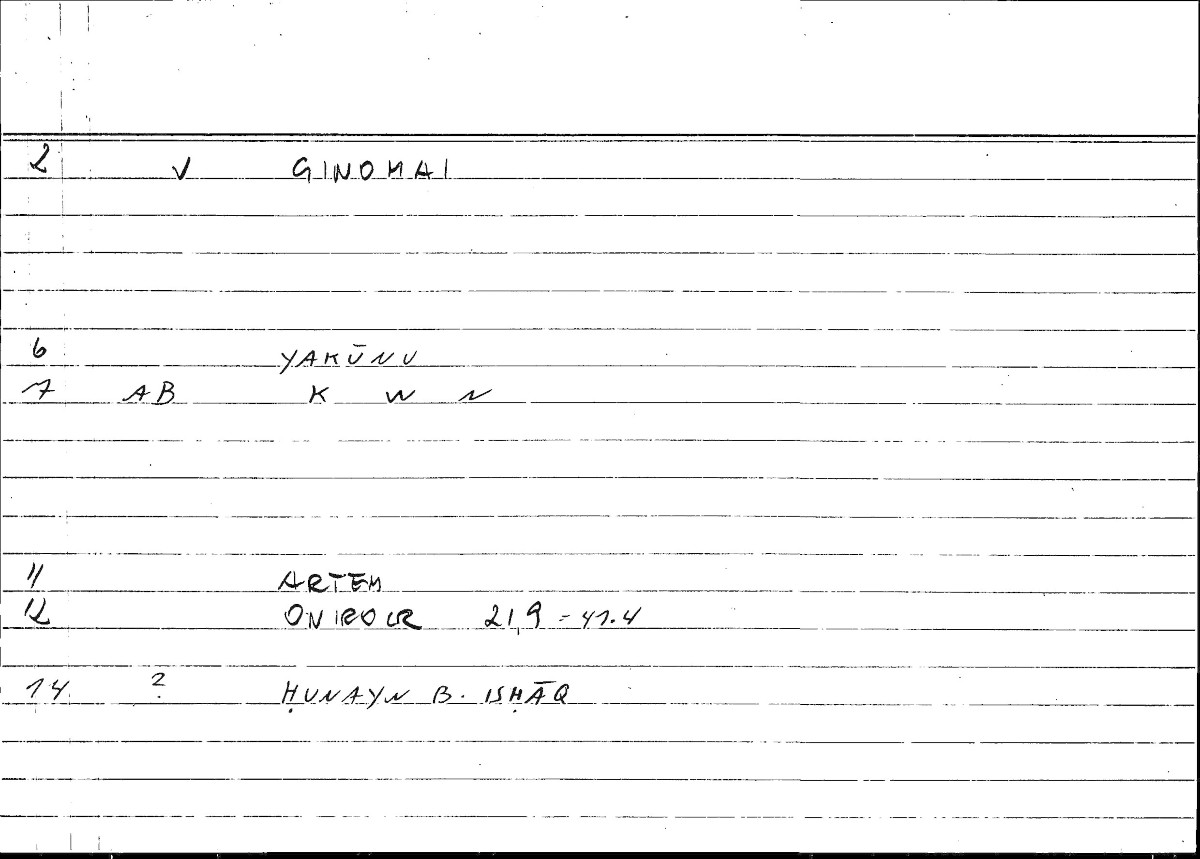 2 V GINOMAI
6 YAKŪNU
7 AB K W N
11 ARTEM
12 ONIROCR 21,9 - 41.4
14 ? ḤUNAYN B. ISḤĀQ